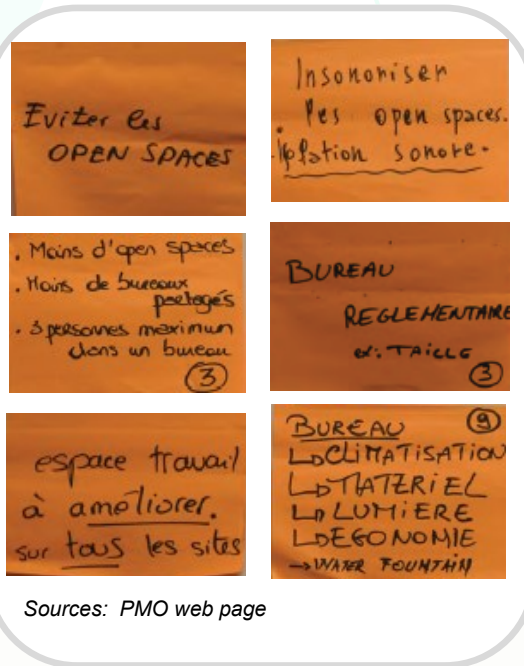 Eviter les
OPEN SPACES
Insonoriser
les open spaces.
. Isolation sonore.
. Moins d'open spaces
. Moins de bureaux
partagés
. 3 personnes maximun
dans un bureau
3
BUREAU
REGLEMENTAIRE
ex: TAILLE
3
espace travail
à améliorer.
sur tous les sites
BUREAU 9
↳CLIMATISATION
↳MATERIEL
↳LUMIERE
↳EGONOMIE
→WATER FOUNTAIN
Sources: PMO web page